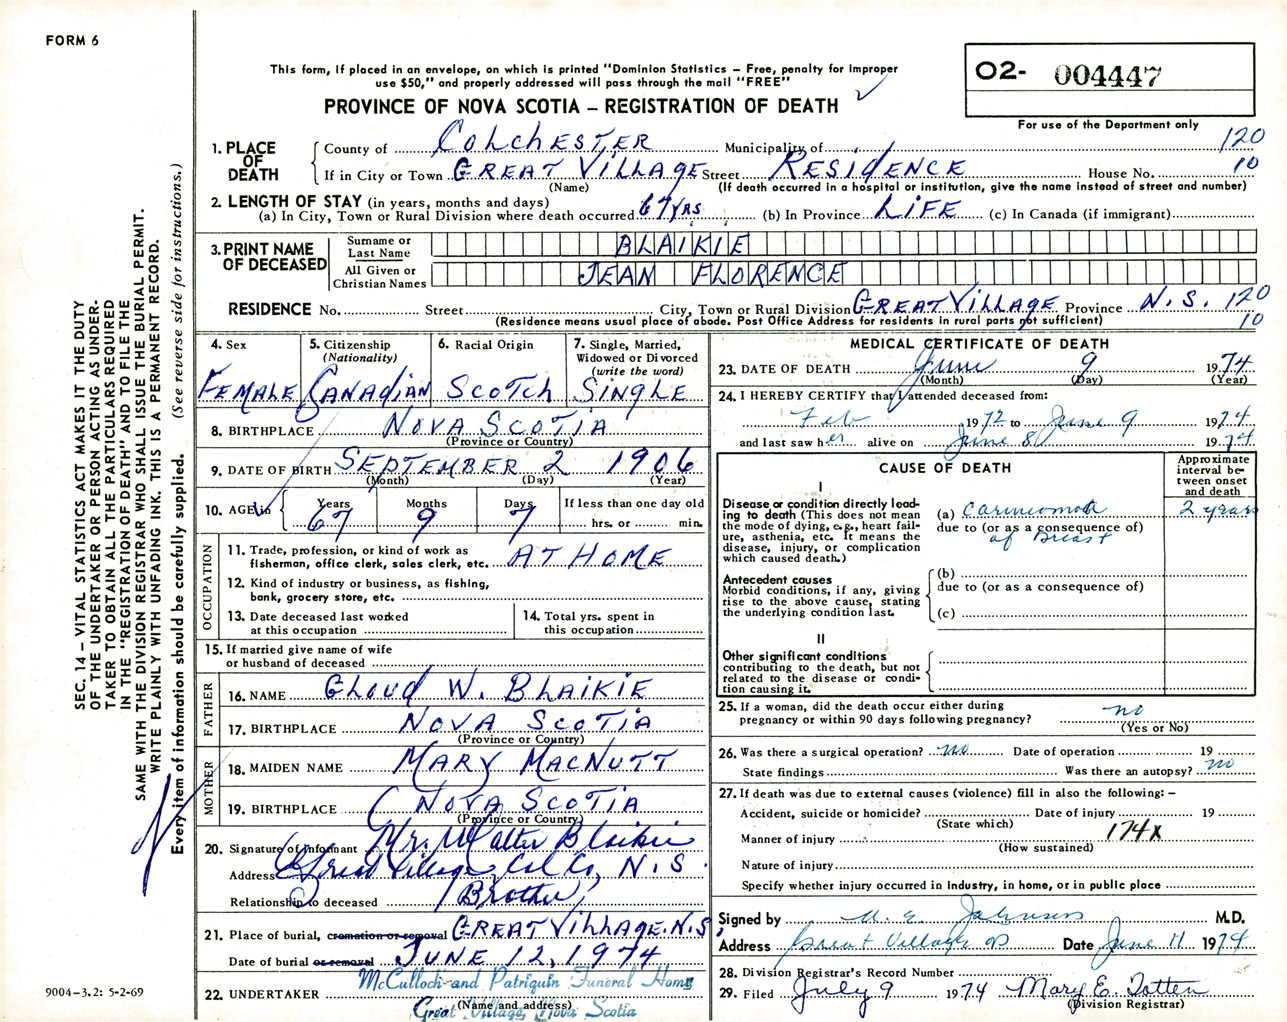 FORM 6
This form, if placed in an envelope, on which is printed "Dominion Statistics – Free, penalty for improper
use $50," and properly addressed will pass through the mail "FREE"
PROVINCE OF NOVA SCOTIA – REGISTRATION OF DEATH
O2- 004447
For use of the Department only
SEC. 14 – VITAL STATISTICS ACT MAKES IT THE DUTY
OF THE UNDERTAKER OR PERSON ACTING AS UNDER-
TAKER TO OBTAIN ALL THE PARTICULARS REQUIRED
IN THE "REGISTRATION OF DEATH" AND TO FILE THE
SAME WITH THE DIVISION REGISTRAR WHO SHALL ISSUE THE BURIAL PERMIT.
WRITE PLAINLY WITH UNFADING INK. THIS IS A PERMANENT RECORD.
Every item of information should be carefully supplied. (See reverse side for instructions.)
1. PLACE OF DEATH
County of COLCHESTER Municipality of 120
If in City or Town GREAT VILLAGE Street RESIDENCE House No. 10
(Name) (If death occurred in a hospital or institution, give the name instead of street and number)
2. LENGTH OF STAY (in years, months and days)
(a) In City, Town or Rural Division where death occurred 67 YRS (b) In Province LIFE (c) In Canada (if immigrant)
3. PRINT NAME OF DECEASED
Surname or Last Name BLAIKIE
All Given or Christian Names JEAN FLORENCE
RESIDENCE No. Street City, Town or Rural Division GREAT VILLAGE Province N.S. 120
(Residence means usual place of abode. Post Office Address for residents in rural parts not sufficient) 10
4. Sex FEMALE
5. Citizenship (Nationality) CANADIAN
6. Racial Origin SCOTCH
7. Single, Married, Widowed or Divorced (write the word) SINGLE
8. BIRTHPLACE NOVA SCOTIA
(Province or Country)
9. DATE OF BIRTH SEPTEMBER 2 1906
(Month) (Day) (Year)
10. AGE in Years 67 Months 9 Days 7 If less than one day old
hrs. or min.
OCCUPATION
11. Trade, profession, or kind of work as
fisherman, office clerk, sales clerk, etc. AT HOME
12. Kind of industry or business, as fishing,
bank, grocery store, etc.
13. Date deceased last worked
at this occupation
14. Total yrs. spent in
this occupation
15. If married give name of wife
or husband of deceased
FATHER
16. NAME CLOUD W. BLAIKIE
17. BIRTHPLACE NOVA SCOTIA
(Province or Country)
MOTHER
18. MAIDEN NAME MARY MACNUTT
19. BIRTHPLACE NOVA SCOTIA
(Province or Country)
20. Signature of informant Mr. Walter Blaikie
Address Great Village, Col. Co, N.S.
Relationship to deceased Brother
21. Place of burial, cremation or removal GREAT VILLAGE, N.S,
Date of burial or removal JUNE 12, 1974
22. UNDERTAKER McCulloch and Patriquin Funeral Home
(Name and address)
Great Village, Nova Scotia
9004-3.2: 5-2-69
MEDICAL CERTIFICATE OF DEATH
23. DATE OF DEATH June 9 1974
(Month) (Day) (Year)
24. I HEREBY CERTIFY that I attended deceased from:
Feb 1972 to June 9 1974
and last saw her alive on June 8 1974
CAUSE OF DEATH
Approximate interval between onset and death
I
Disease or condition directly lead-
ing to death (This does not mean
the mode of dying, e.g., heart fail-
ure, asthenia, etc. It means the
disease, injury, or complication
which caused death.)
(a) carcinoma 2 years
due to (or as a consequence of)
of Breast
Antecedent causes
Morbid conditions, if any, giving
rise to the above cause, stating
the underlying condition last.
(b)
due to (or as a consequence of)
(c)
II
Other significant conditions
contributing to the death, but not
related to the disease or condi-
tion causing it.
25. If a woman, did the death occur either during
pregnancy or within 90 days following pregnancy? no
(Yes or No)
26. Was there a surgical operation? no Date of operation 19
State findings Was there an autopsy? no
27. If death was due to external causes (violence) fill in also the following: –
Accident, suicide or homicide? Date of injury 19
(State which)
Manner of injury 174X
(How sustained)
Nature of injury
Specify whether injury occurred in industry, in home, or in public place
Signed by Johnson M.D.
Address Great Village Date June 11 1974
28. Division Registrar's Record Number
29. Filed July 9 1974 Mary E. Totten
(Division Registrar)